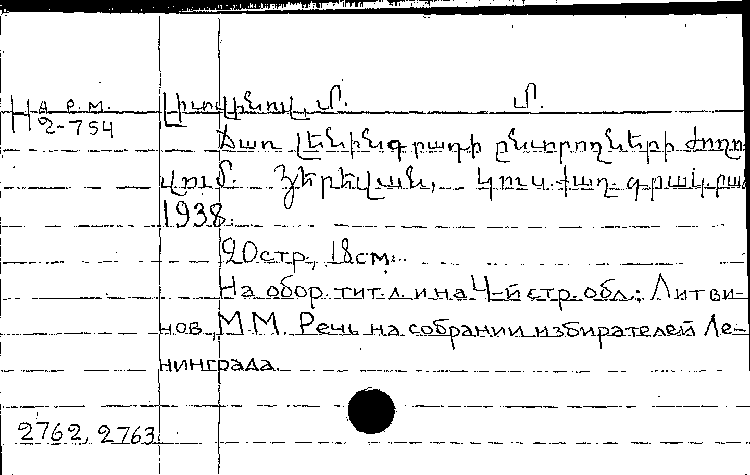 НАРМ. Լիտվինով, Մ. Մ.
2-754
Ճառ Լենինգրադի ընտրողների ժողո-
վում. Յերեվան, Կուս. հրատ.
1938.
20стр., 18см.
На обор. тит. л. и на 4-й стр. обл.: Литви-
нов, М.М. Речь на собрании избирателей Ле-
нинграда.
2762, 2763